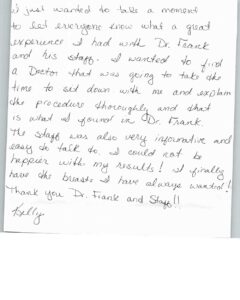 I just wanted to take a moment
to let everyone know what a great
experience I had with Dr. Frank
and his staff. I wanted to find
a Doctor that was going to take the
time to sit down with me and explain
the procedure thoroughly and that
is what I found in Dr. Frank.
The staff was also very informative and
easy to talk to. I could not be
happier with my results! I finally
have the breasts I have always wanted!
Thank you Dr. Frank and Staff!!
Kelly